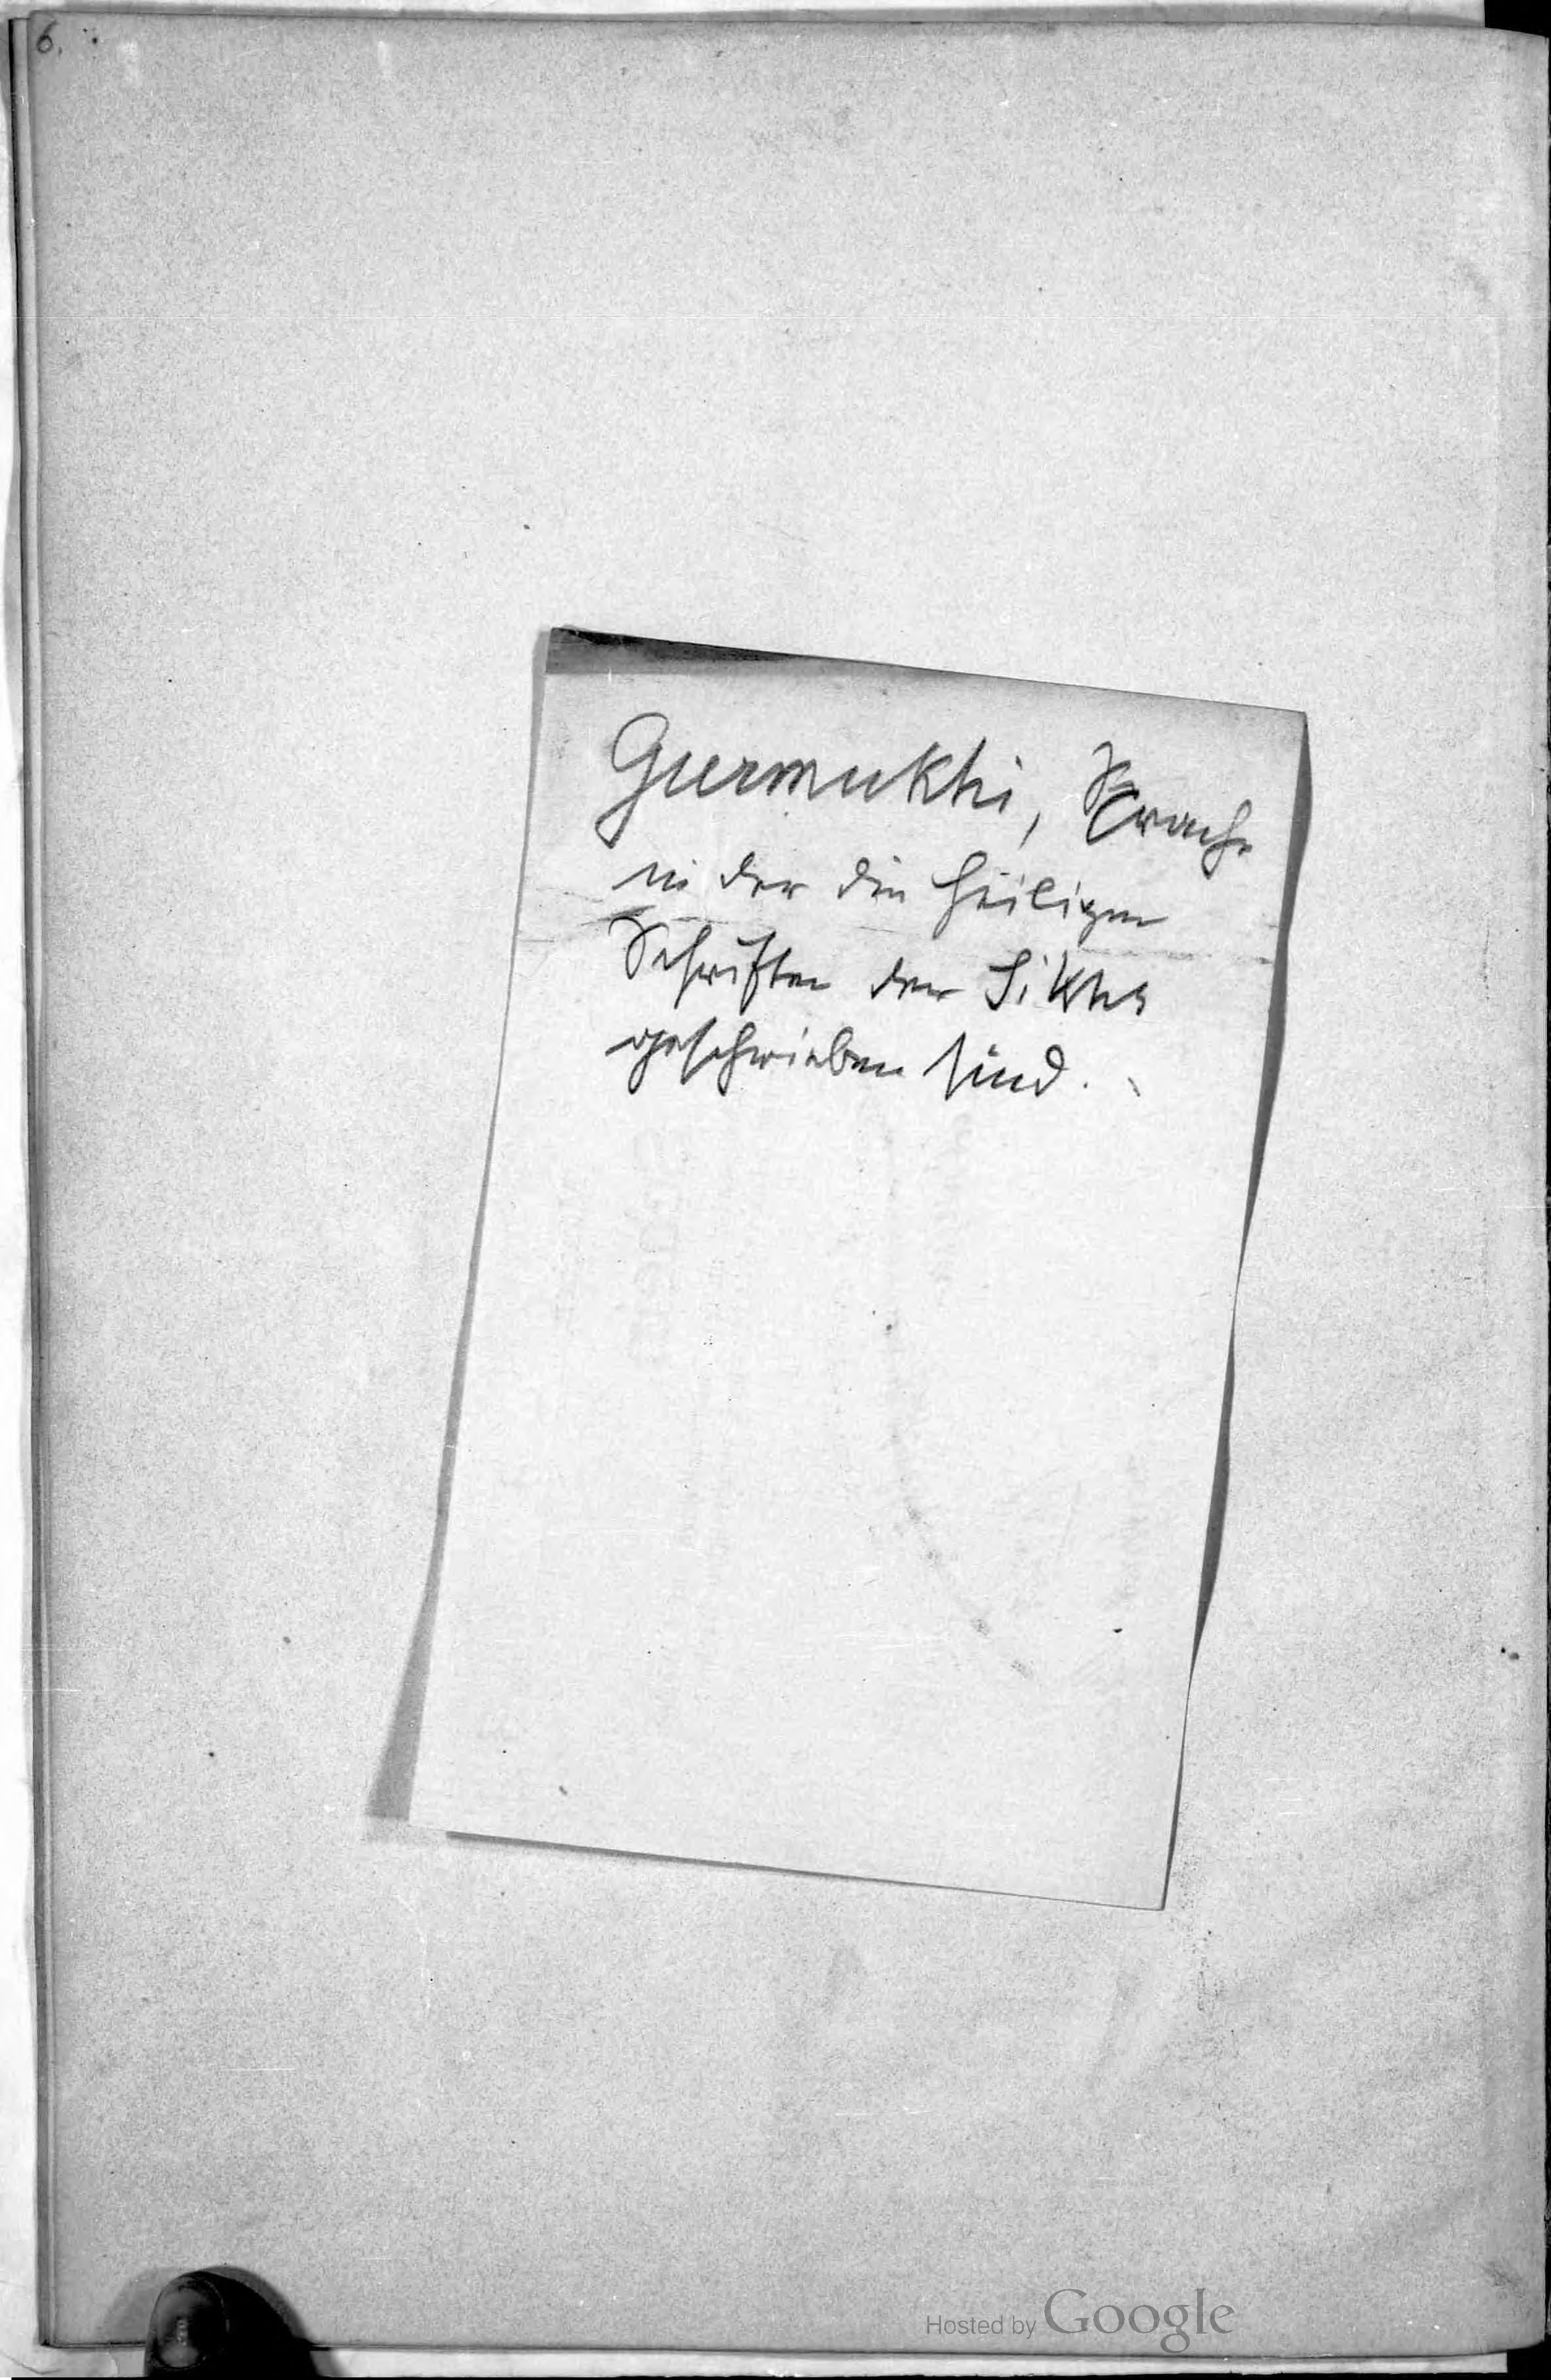 6.
Gurmukhi, Sprache
in der die heiligen
Schriften der Sikhs
geschrieben sind.
Hosted by Google